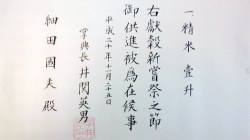 一 精米 壹升
右献穀新嘗祭之節
御供進被為在候事
平成二十年十一月二十五日
掌典長 井関英男
細田國夫 殿